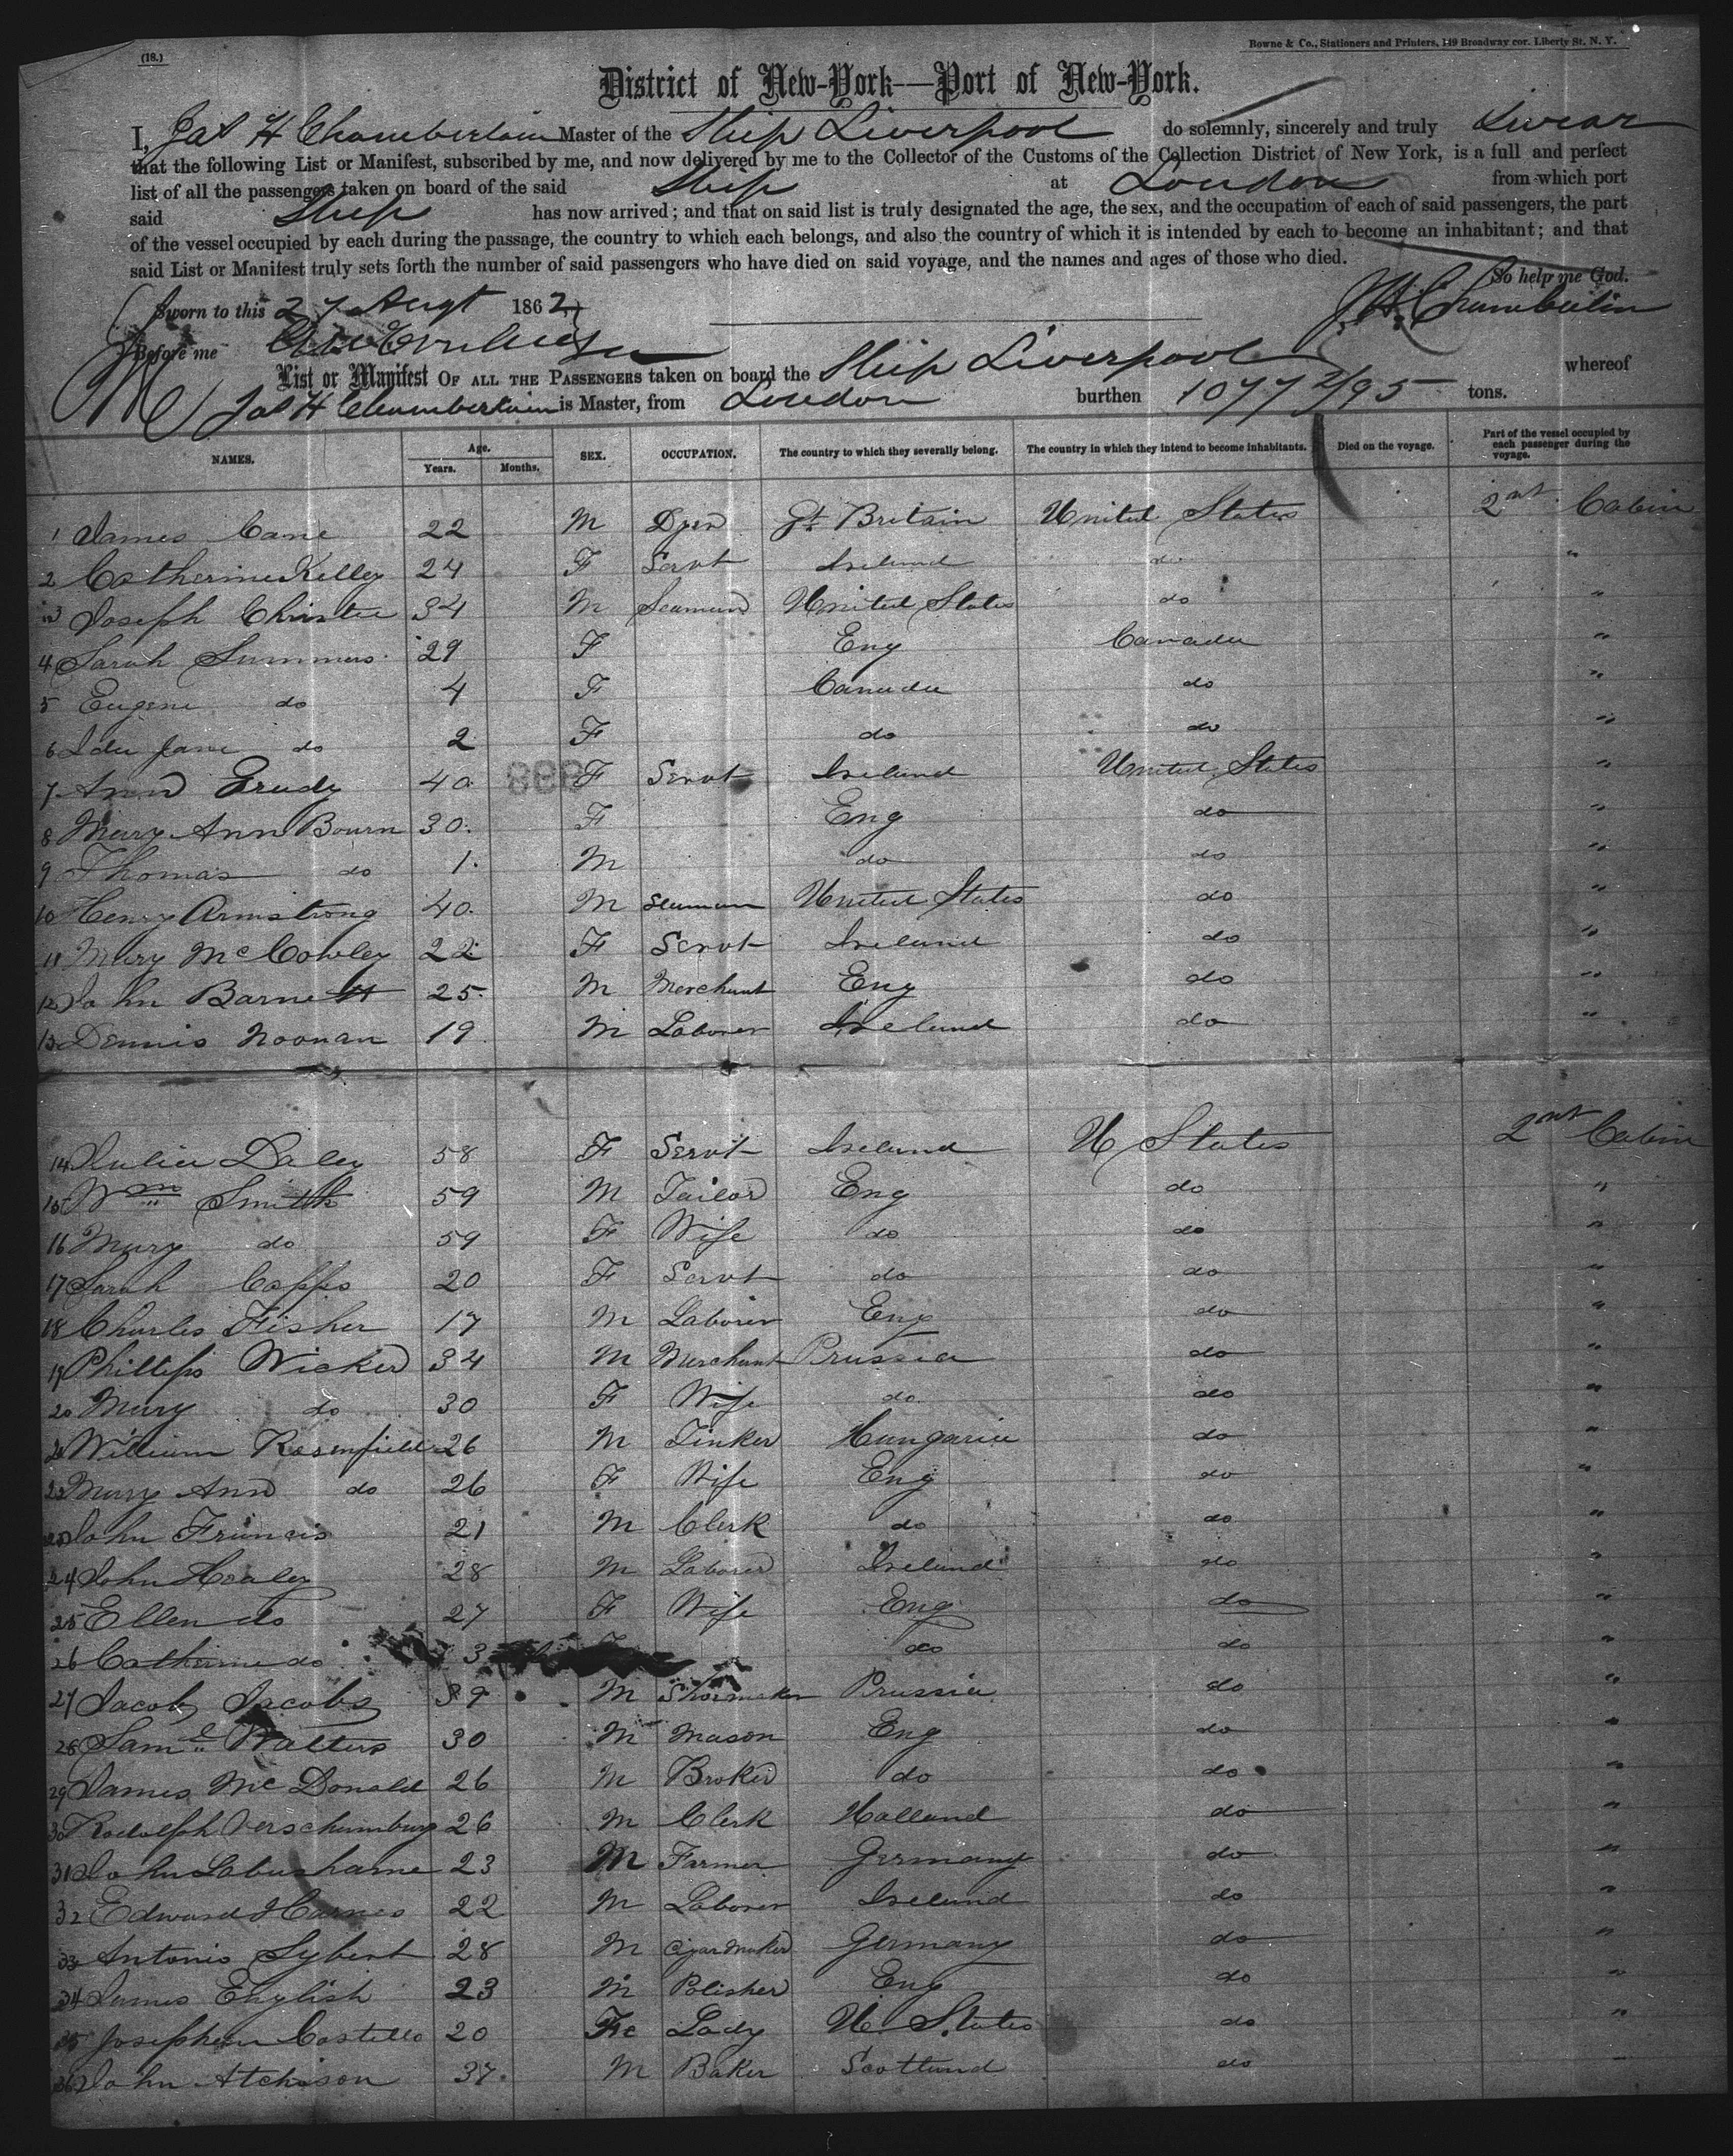 (18.)
Bowne & Co., Stationers and Printers, 149 Broadway cor. Liberty St. N. Y.
District of New-York—Port of New-York.
I, Jas H Chamberlain Master of the Ship Liverpool do solemnly, sincerely and truly Swear
that the following List or Manifest, subscribed by me, and now delivered by me to the Collector of the Customs of the Collection District of New York, is a full and perfect
list of all the passengers taken on board of the said Ship at London from which port
said Ship has now arrived; and that on said list is truly designated the age, the sex, and the occupation of each of said passengers, the part
of the vessel occupied by each during the passage, the country to which each belongs, and also the country of which it is intended by each to become an inhabitant; and that
said List or Manifest truly sets forth the number of said passengers who have died on said voyage, and the names and ages of those who died.
So help me God.
Sworn to this 27 Augt 1862 J. H. Chamberlin
Before me
List or Manifest OF ALL THE PASSENGERS taken on board the Ship Liverpool whereof
Jas H Chamberlain is Master, from London burthen 1077 2/95 tons.
NAMES. Age. Years. Months. SEX. OCCUPATION. The country to which they severally belong. The country in which they intend to become inhabitants. Died on the voyage. Part of the vessel occupied by each passenger during the voyage.
1 James Cane 22 M Dyer Gt Britain United States 2nd Cabin
2 Catherine Kelley 24 F Servt Ireland do "
3 Joseph Christie 34 M Seaman United States do "
4 Sarah Summers 29 F Eng Canada "
5 Eugene do 4 F Canada do "
6 Ida Jane do 2 F do do "
7 Ann Grudy 40 F Servt Ireland United States "
8 Mary Ann Bourn 30 F Eng do "
9 Thomas do 1 M do do "
10 Henry Armstrong 40 M Seaman United States do "
11 Mary McCowley 22 F Servt Ireland do "
12 John Barnett 25 M Merchant Eng do "
13 Dennis Noonan 19 M Laborer Ireland do "
14 Julia Daley 58 F Servt Ireland U States 2nd Cabin
15 Wm Smith 59 M Tailor Eng do "
16 Mary do 59 F Wife do do "
17 Sarah Capps 20 F Servt do do "
18 Charles Fisher 17 M Laborer Eng do "
19 Phillips Wicker 34 M Merchant Prussia do "
20 Mary do 30 F Wife do do "
21 William Rosenfield 26 M Tinker Hungaria do "
22 Mary Ann do 26 F Wife Eng do "
23 John Francis 21 M Clerk do do "
24 John Healey 28 M Laborer Ireland do "
25 Ellen do 27 F Wife Eng do "
26 Catherine do 3 do do "
27 Jacob Jacobs 39 M Shoemaker Prussia do "
28 Saml Walters 30 M Mason Eng do "
29 James McDonald 26 M Broker do do "
30 Rodolph Verschumburg 26 M Clerk Holland do "
31 John Labusharne 23 M Farmer Germany do "
32 Edward Harnes 22 M Laborer Ireland do "
33 Antonio Sybert 28 M Cigar Maker Germany do "
34 James English 23 M Polisher Eng do "
35 Josephine Costello 20 Fe Lady U. States do "
36 John Atchison 37 M Baker Scotland do "